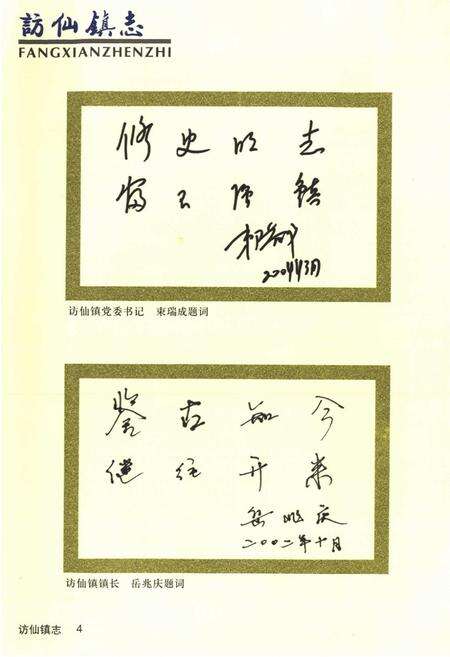 訪仙鎮志
FANGXIANZHENZHI
修史明志
富民强镇
束瑞成
2004年3月
访仙镇党委书记 束瑞成题词
鉴古知今
继往开来
岳兆庆
二〇〇二年十月
访仙镇镇长 岳兆庆题词
访仙镇志 4